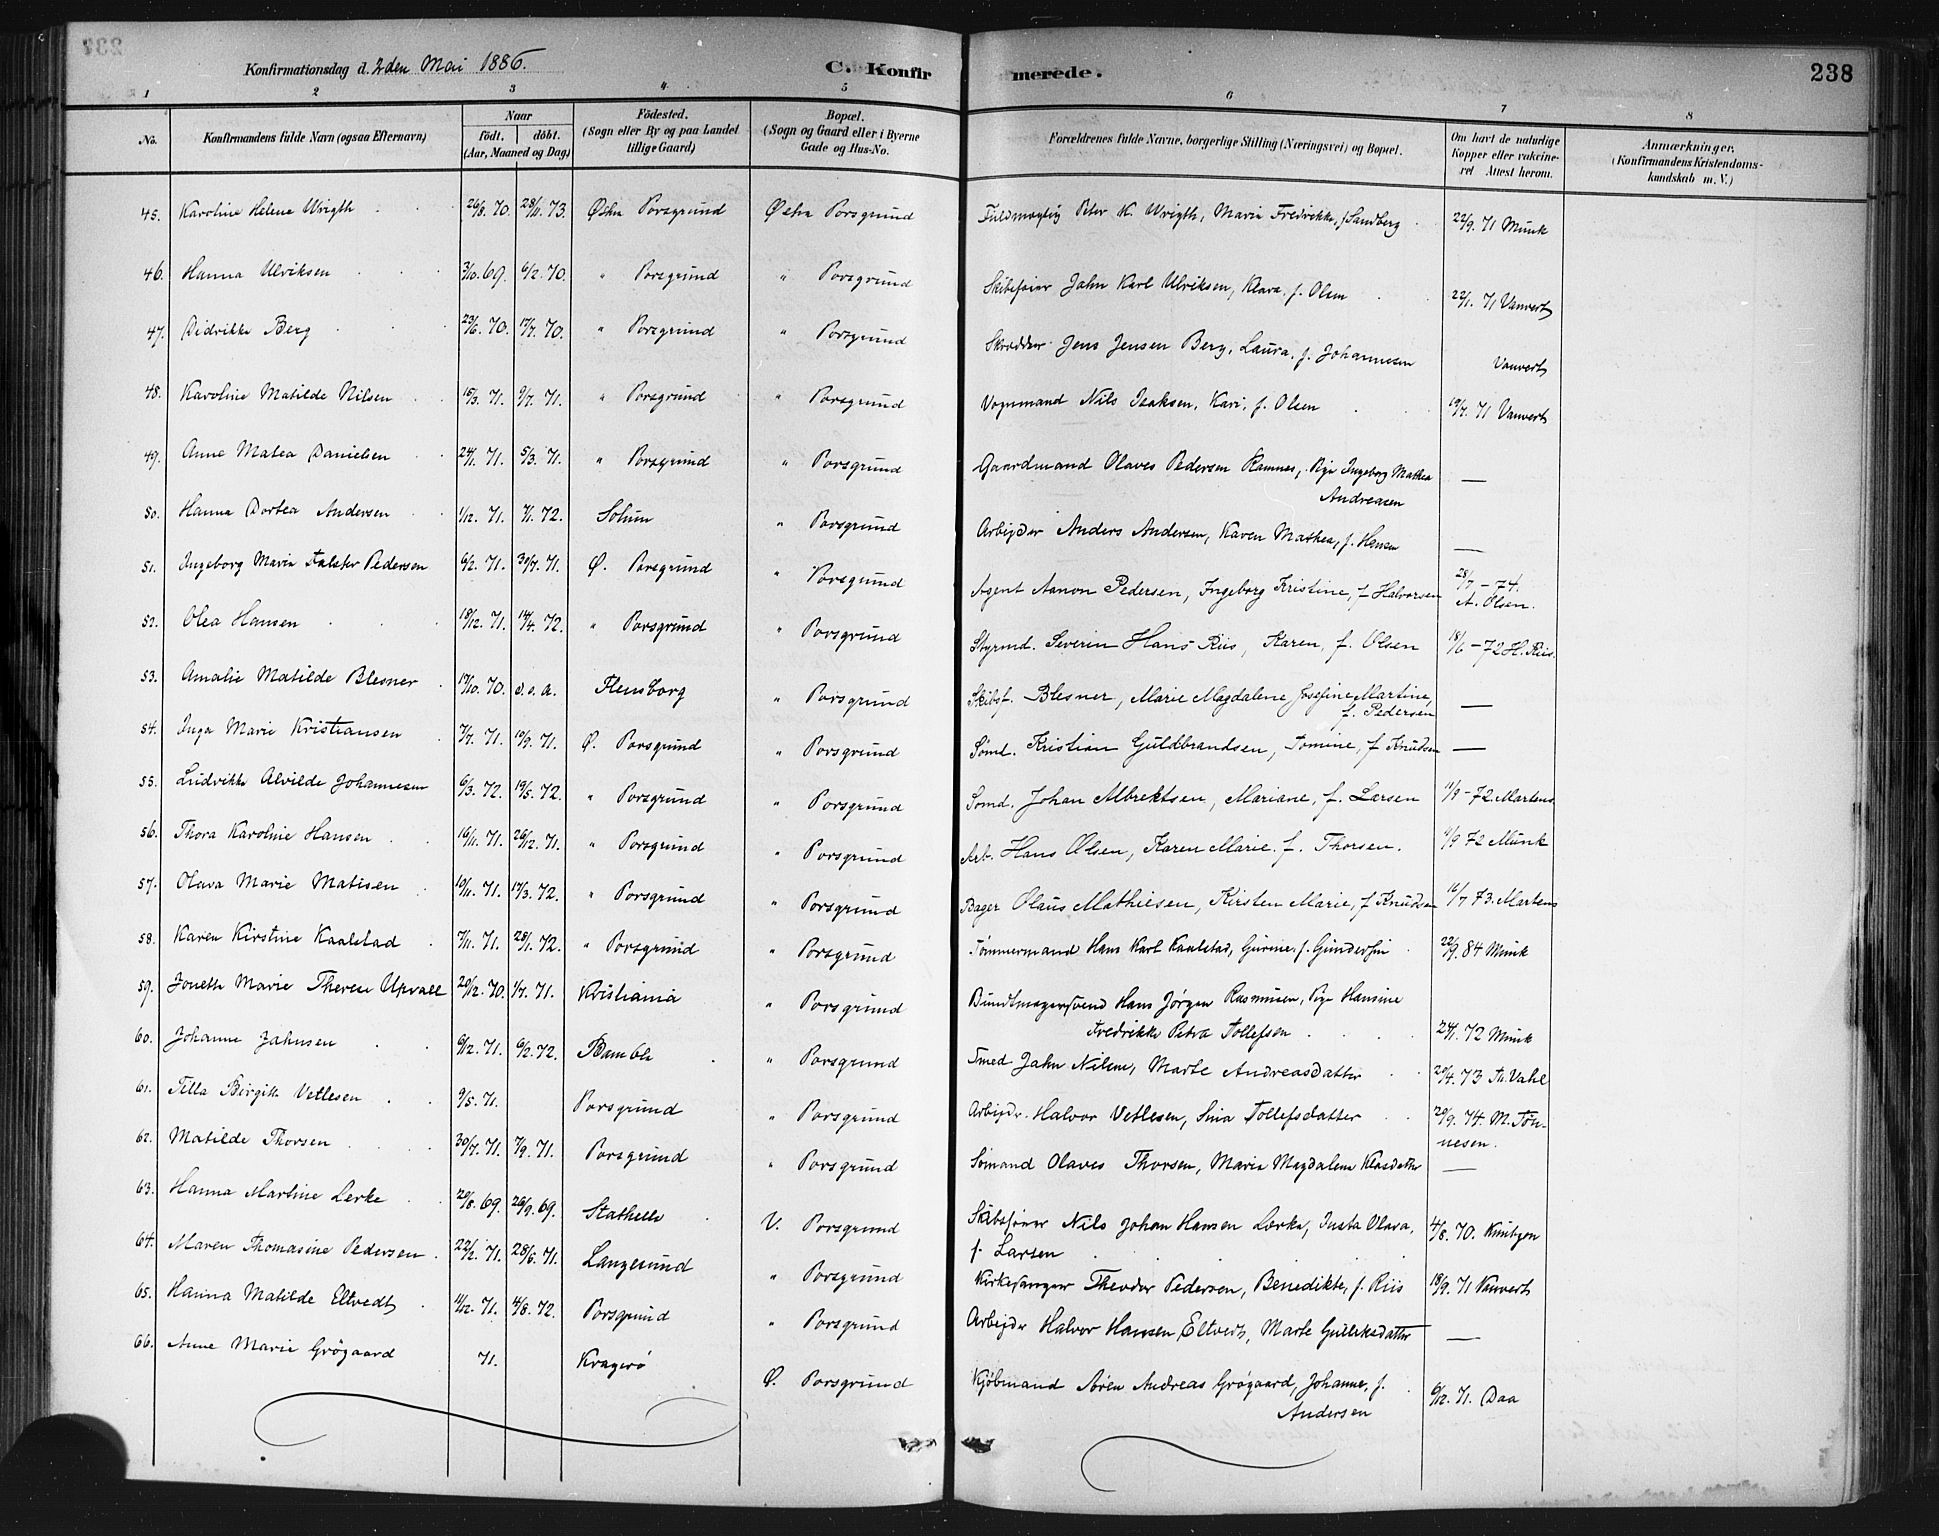 Konfirmationsdag d. 2den Mai 1886. C. Konfirmerede. 238
1 2 3 4 5 6 7 8
No. Konfirmandens fulde Navn (ogsaa Efternavn) Naar födt. döbt. (Aar, Maaned og Dag) Födested. (Sogn eller By og paa Landet tillige Gaard) Bopæl. (Sogn og Gaard eller i Byerne Gade og Hus-No. Forældrenes fulde Navne, borgerlige Stilling (Næringsvei) og Bopæl. Om havt de naturlige Kopper eller vakcineret Attest herom. Anmærkninger. (Konfirmandens Kristendomskundskab m. V.)
45. Karoline Helene Wrigth 26/8. 70. 28/11. 73. Østre Porsgrund Østre Porsgrund Fuldmægtig Peter K. Wrigth, Marie Fredrikke, f. Sandberg 22/9. 71 Munk
46. Hanna Ulriksen 3/10. 69. 6/2. 70. " Porsgrund " Porsgrund Skibsfører John Karl Ulriksen, Klara, f. Olsen 22/1. 71 Vauvert
47. Didrikke Berg 23/6. 70. 17/7. 70. " Porsgrund " Porsgrund Skrædder Jens Jensen Berg, Laura, f. Johannesen Vauvert
48. Karoline Matilde Nilsen 15/3. 71. 9/7. 71. " Porsgrund " Porsgrund Vognmand Nils Isaksen, Kari, f. Olsen 19/7. 71 Vauvert
49. Anne Matea Danielsen 24/1. 71. 5/3. 71. " Porsgrund " Porsgrund Gaardmand Olaves Pedersen Ramnes, Pige Ingeborg Mathea Andreasen —
50. Hanna Dortea Andersen 1/12. 71. 7/1. 72. Solum " Porsgrund Arbejder Anders Andersen, Karen Mathea, f. Hansen —
51. Ingeborg Marie Falster Pedersen 6/2. 71. 30/7. 71. Ø. Porsgrund " Porsgrund Agent Aanon Pedersen, Ingeborg Kristine, f. Halvorsen 28/7 - 74. A. Olsen.
52. Olea Hansen 18/12. 71. 14/4. 72. " Porsgrund " Porsgrund Styrmd. Severin Hans Riis, Karen, f. Olsen 18/6 - 72 H. Riis.
53. Amalie Matilde Blesner 17/10. 70. d. o. a. Flensborg " Porsgrund Skibsf. Blesner, Marie Magdalene Josefine Martine, f. Pedersen —
54. Inga Marie Kristiansen 7/7. 71. 10/9. 71. Ø. Porsgrund " Porsgrund Sømd. Kristian Guldbrandsen, Tomine, f. Knudsen —
55. Ludvikke Alvilde Johannesen 6/3. 72. 19/5. 72. " Porsgrund " Porsgrund Sømd. Johan Albrektsen, Mariane, f. Larsen 11/9 - 72. Martens
56. Thora Karoline Hansen 16/11. 71. 26/12. 71. " Porsgrund " Porsgrund Arb. Hans Olsen, Karen Marie, f. Thorsen. 11/9 72 Munk
57. Olava Marie Matisen 10/11. 71. 17/3. 72. " Porsgrund " Porsgrund Bager Olaus Mathiesen, Kirsten Marie, f. Knudsen 16/7 73. Martens
58. Karen Kirstine Kaalstad 7/11. 71. 28/1. 72. " Porsgrund " Porsgrund Tømmermand Hans Karl Kaalstad, Gurine, f. Gundersen 22/9. 84 Munk
59. Jonette Marie Therese Upvall 20/12. 70. 1/7. 71. Kristiania " Porsgrund Bundtmagersvend Hans Jørgen Rasmussen, Pige Hansine Fredrikke Petra Tollefsen 24/1. 72 Munk
60. Johanne Jahnsen 6/12. 71. 6/2. 72. Bamble " Porsgrund Smed Jahn Nilsen, Marte Andreasdatter 20/4. 73 Th. Vahl
61. Tella Birgitte Vetlesen 9/5. 71. Porsgrund " Porsgrund Arbejdr. Halvor Vetlesen, Sina Tollefsdatter 20/9. 74. M. Tönnesen.
62. Matilde Thorsen 30/7. 71. 7/9. 71. Porsgrund " Porsgrund Sømand Olaves Thorsen, Maria Magdalena Klasdatter —
63. Hanna Martine Lerke 20/8. 69. 26/9. 69. Stathelle V. Porsgrund Skibsfører Nils Johan Hansen Lerke, Justa Olava, f. Larsen 4/8. 70.
64. Maren Thomasine Pedersen 22/2. 71. 28/6. 71. Langesund " Porsgrund Kirkesanger Theodor Pedersen, Benedikte, f. Riis 18/9. 71 Vauvert
65. Hanna Matilde Eltvedt 11/12. 71. 4/8. 72. Porsgrund " Porsgrund Arbejder Halvor Hansen Eltvedt, Marte Gulleksdatter —
66. Anne Marie Grögaard 71. Kragerø Ø. Porsgrund Kjøbmand Søren Andreas Grögaard, Johanne, f. Andersen 6/12. 71. Daa